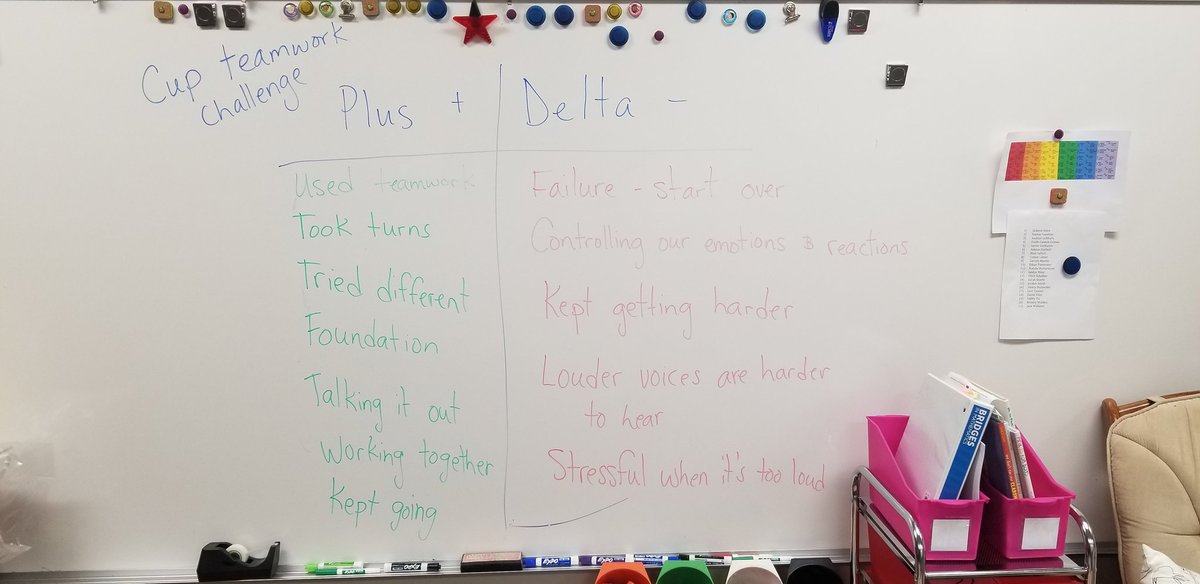 Cup teamwork
challenge
Plus +
Delta -
Used teamwork
Took turns
Tried different
Foundation
Talking it out
Working together
Kept going
Failure - start over
Controlling our emotions & reactions
Kept getting harder
Louder voices are harder
to hear
Stressful when it's too loud
BRIDGES
IN MATHEMATICS
EXPO